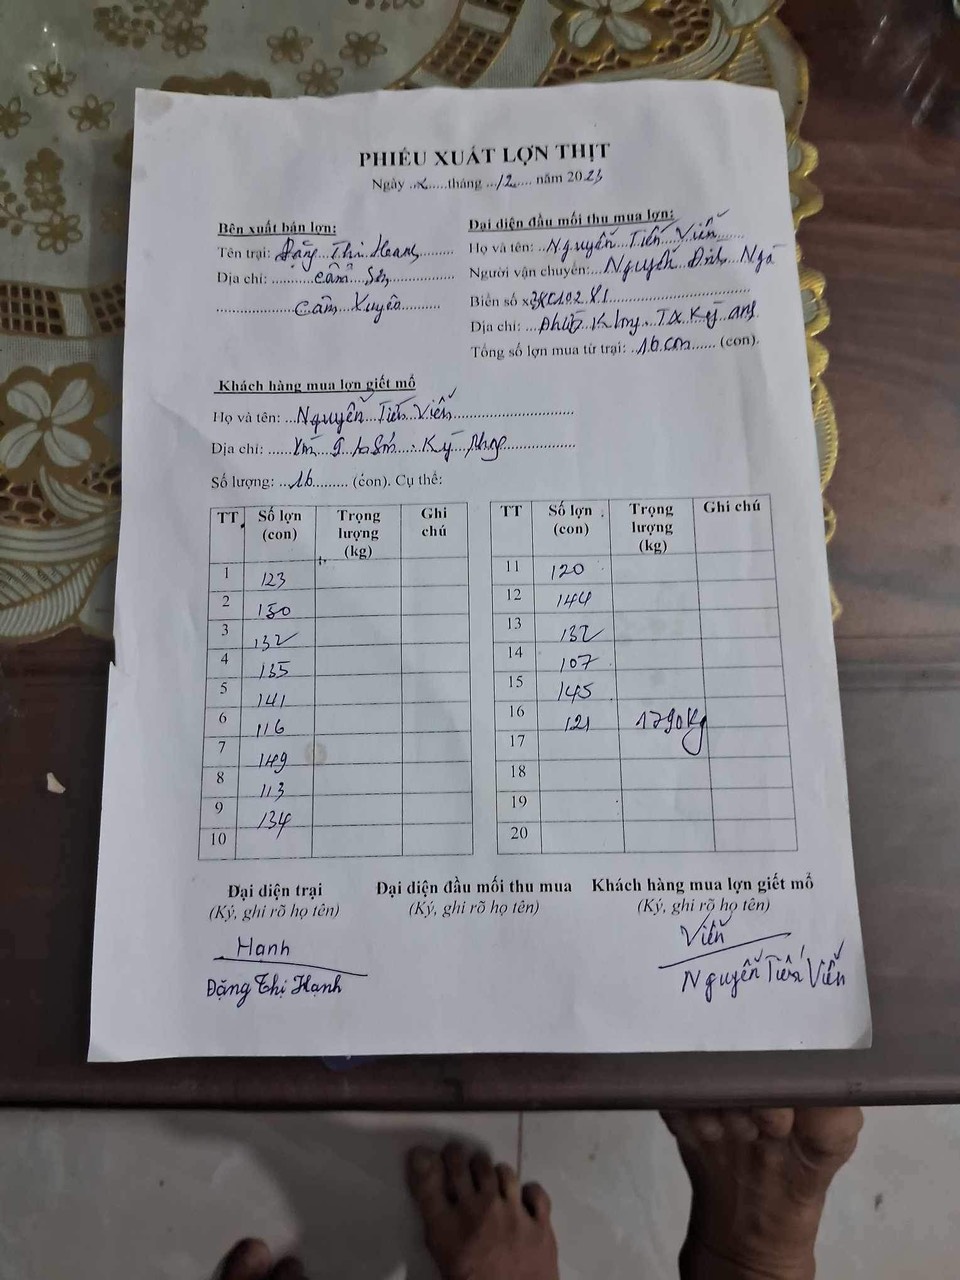 PHIẾU XUẤT LỢN THỊT
Ngày ........tháng ...12..... năm 2023
Bên xuất bán lợn:
Tên trại: Đặng Thị Hạnh
Địa chỉ: ..........Cẩm Sơn
Cẩm Xuyên
Đại diện đầu mối thu mua lợn:
Họ và tên: ..Nguyễn Tiến Viễn
Người vận chuyển: Nguyễn Đình
Biển số x
Địa chỉ: TX Kỳ anh
Tổng số lợn mua từ trại: ..16 con...... (con).
Khách hàng mua lợn giết mổ
Họ và tên: ...Nguyễn Tiến Viễn
Địa chỉ: Kỳ
Số lượng: ...16......... (con). Cụ thể:
TT Số lợn (con) Trọng lượng (kg) Ghi chú
1 123
2 150
3 132
4 135
5 141
6 116
7 149
8 113
9 134
10
TT Số lợn (con) Trọng lượng (kg) Ghi chú
11 120
12 144
13 132
14 107
15 145
16 121 1790kg
17
18
19
20
Đại diện trại
(Ký, ghi rõ họ tên)
Hạnh
Đặng Thị Hạnh
Đại diện đầu mối thu mua
(Ký, ghi rõ họ tên)
Khách hàng mua lợn giết mổ
(Ký, ghi rõ họ tên)
Viễn
Nguyễn Tiến Viễn